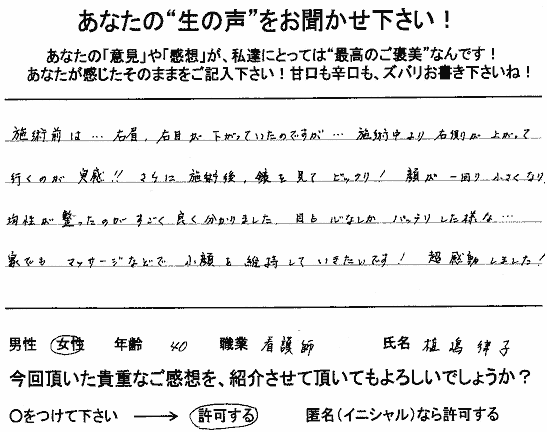 あなたの“生の声”をお聞かせ下さい！
あなたの「意見」や「感想」が、私達にとっては“最高のご褒美”なんです！
あなたが感じたそのままをご記入下さい！甘口も辛口も、ズバリお書き下さいね！
施術前は… 右眉、右目が下がっていたのですが… 施術中より右側が上がって
行くのが実感!! さらに施術後、鏡を見てビックリ！ 顔が一回り小さくなり、
均性が整ったのがすごく良く分かりました。目も心なしかパッチリした様な…
家でもマッサージなどで小顔を維持していきたいです！ 超感動しました！
男性 女性 年齢 40 職業 看護師 氏名 植嶋 律子
今回頂いた貴重なご感想を、紹介させて頂いてもよろしいでしょうか？
〇をつけて下さい → 許可する 匿名（イニシャル）なら許可する